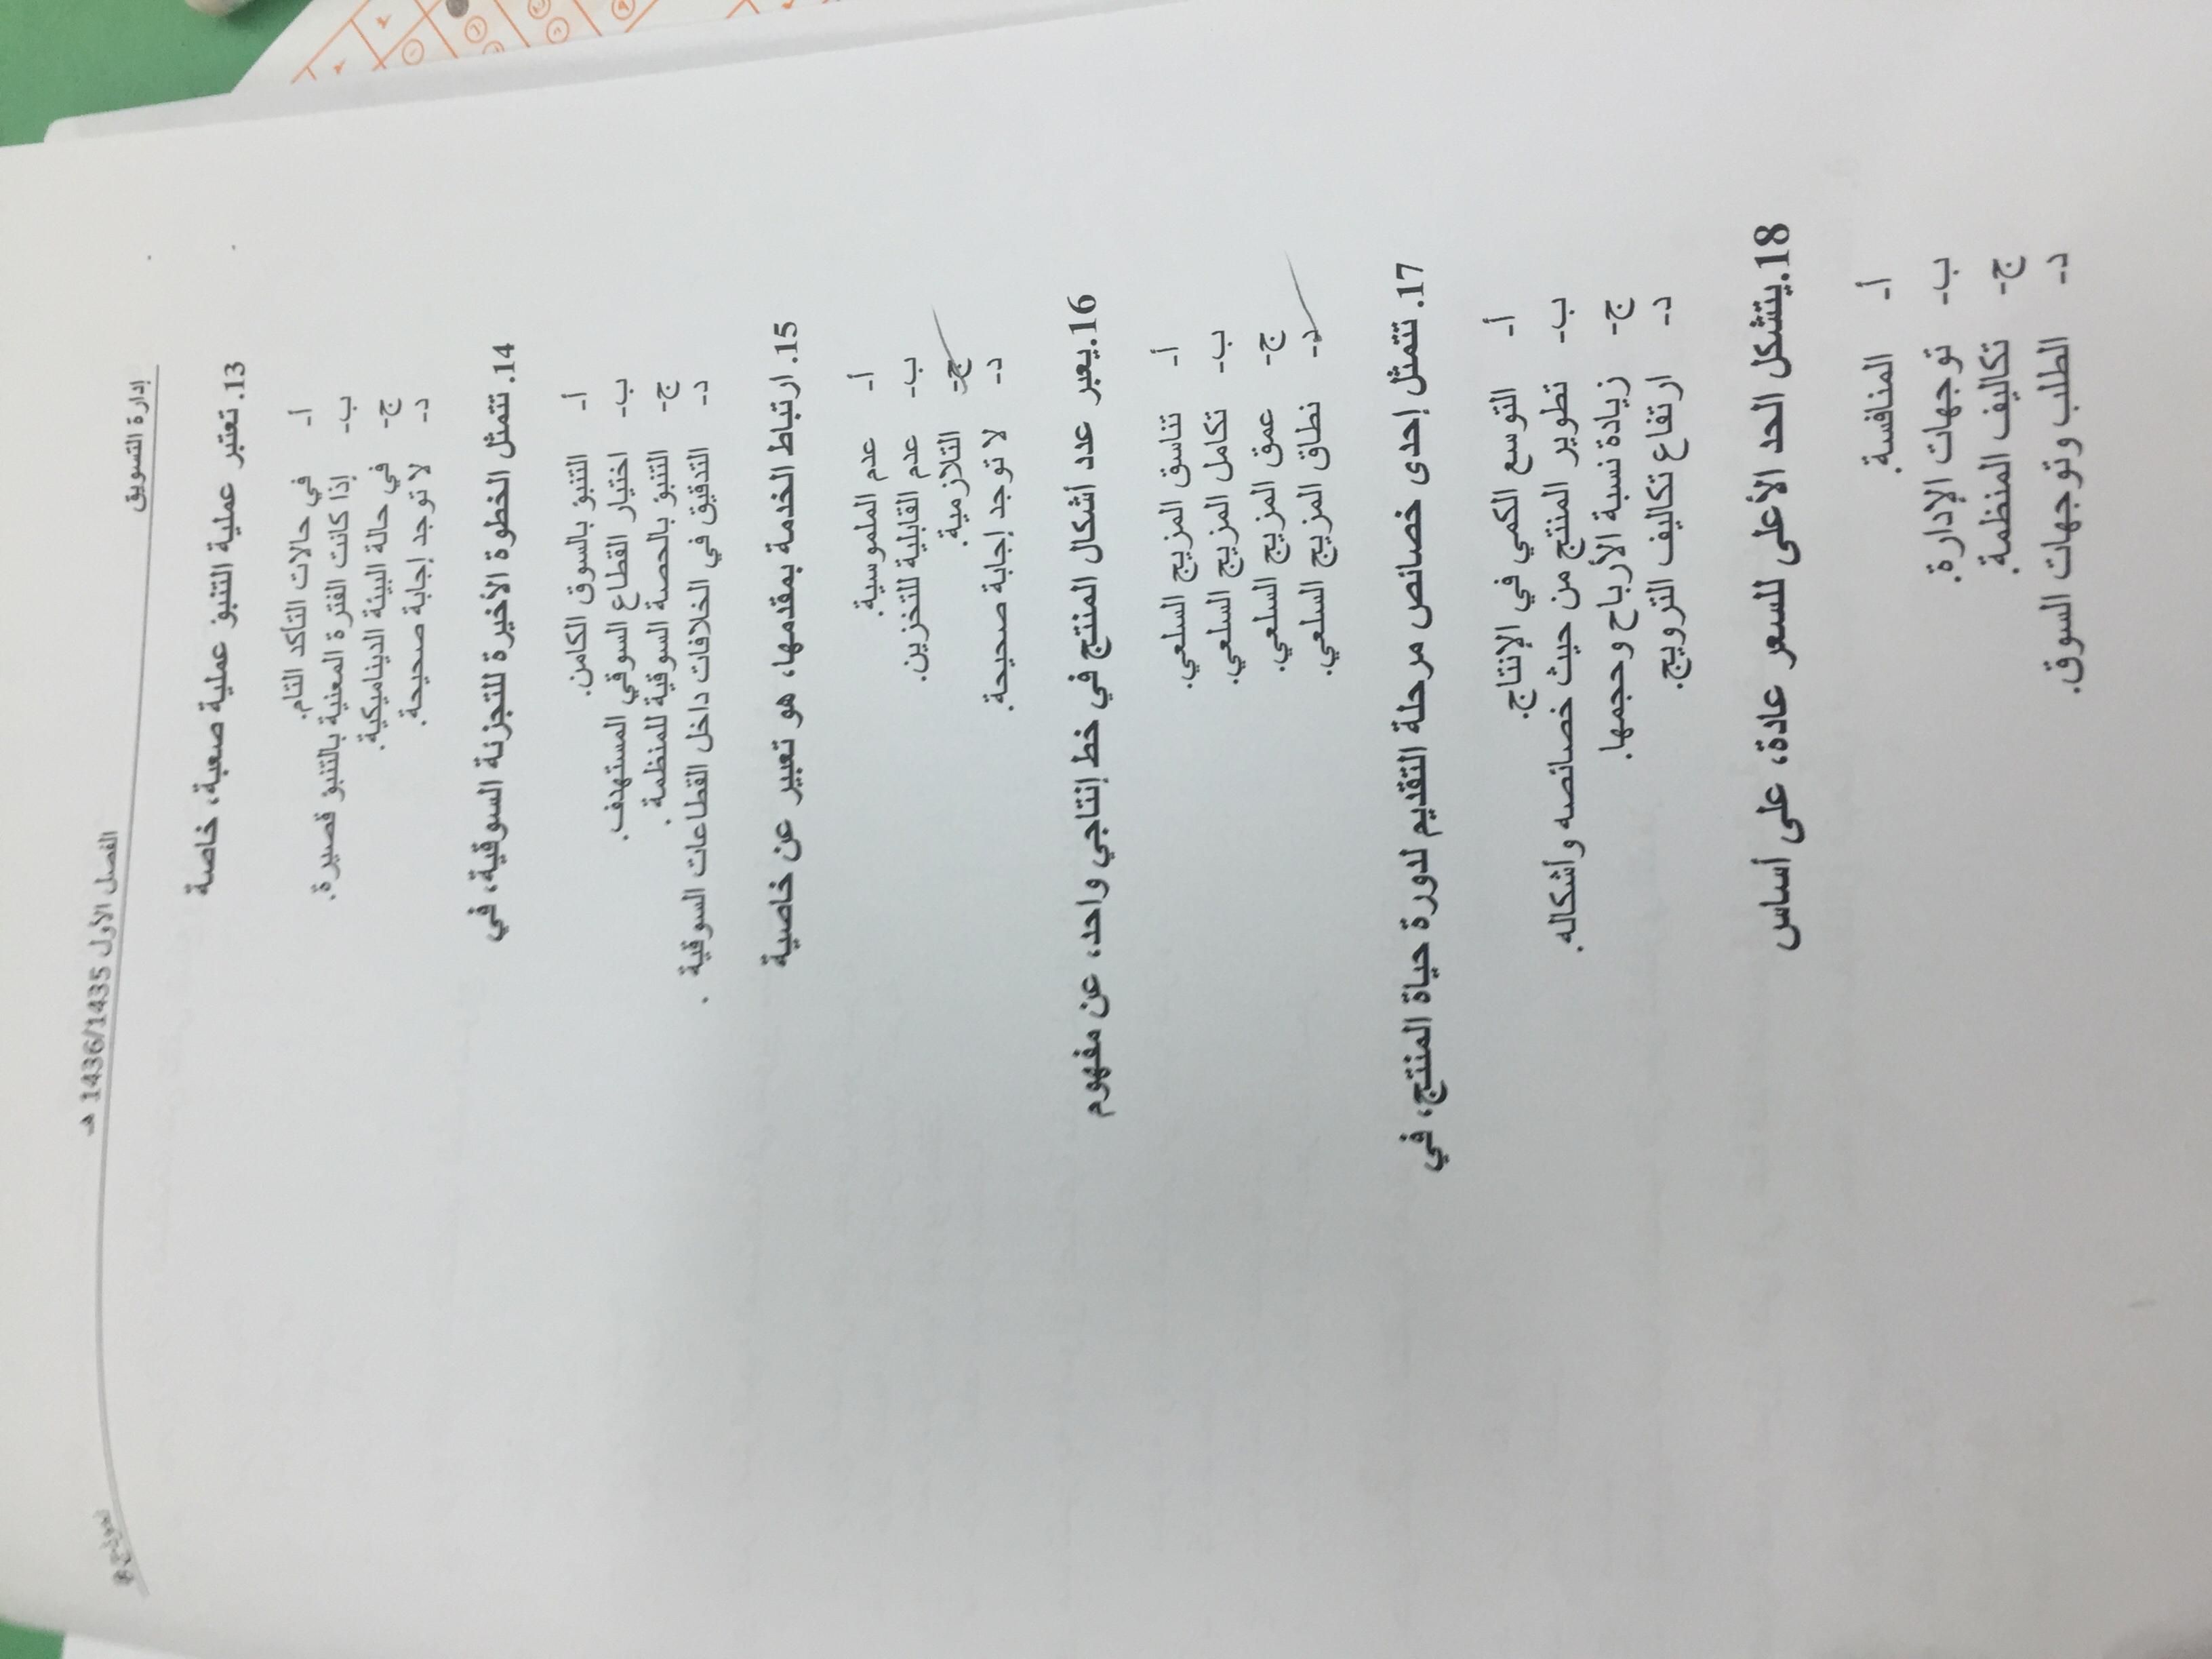 إدارة التسويق الفصل الأول 1436/1435 هـ
13. تعتبر عملية التنبؤ عملية صعبة، خاصة
أ- في حالات التأكد التام.
ب- إذا كانت الفترة المعنية بالتنبؤ قصيرة.
ج- في حالة البيئة الديناميكية.
د- لا توجد إجابة صحيحة.
14. تتمثل الخطوة الأخيرة للتجزئة السوقية، في
أ- التنبؤ بالسوق الكامن.
ب- اختيار القطاع السوقي المستهدف.
ج- التنبؤ بالحصة السوقية للمنظمة.
د- التدقيق في الخلافات داخل القطاعات السوقية .
15. ارتباط الخدمة بمقدمها، هو تعبير عن خاصية
أ- عدم الملموسية.
ب- عدم القابلية للتخزين.
ج- التلازمية.
د- لا توجد إجابة صحيحة.
16.يعبر عدد أشكال المنتج في خط إنتاجي واحد، عن مفهوم
أ- تناسق المزيج السلعي.
ب- تكامل المزيج السلعي.
ج- عمق المزيج السلعي.
د- نطاق المزيج السلعي.
17. تتمثل إحدى خصائص مرحلة التقديم لدورة حياة المنتج، في
أ- التوسع الكمي في الإنتاج.
ب- تطوير المنتج من حيث خصائصه وأشكاله.
ج- زيادة نسبة الأرباح وحجمها.
د- ارتفاع تكاليف الترويج.
18.يتشكل الحد الأعلى للسعر عادة، على أساس
أ- المنافسة.
ب- توجهات الإدارة.
ج- تكاليف المنظمة.
د- الطلب وتوجهات السوق.